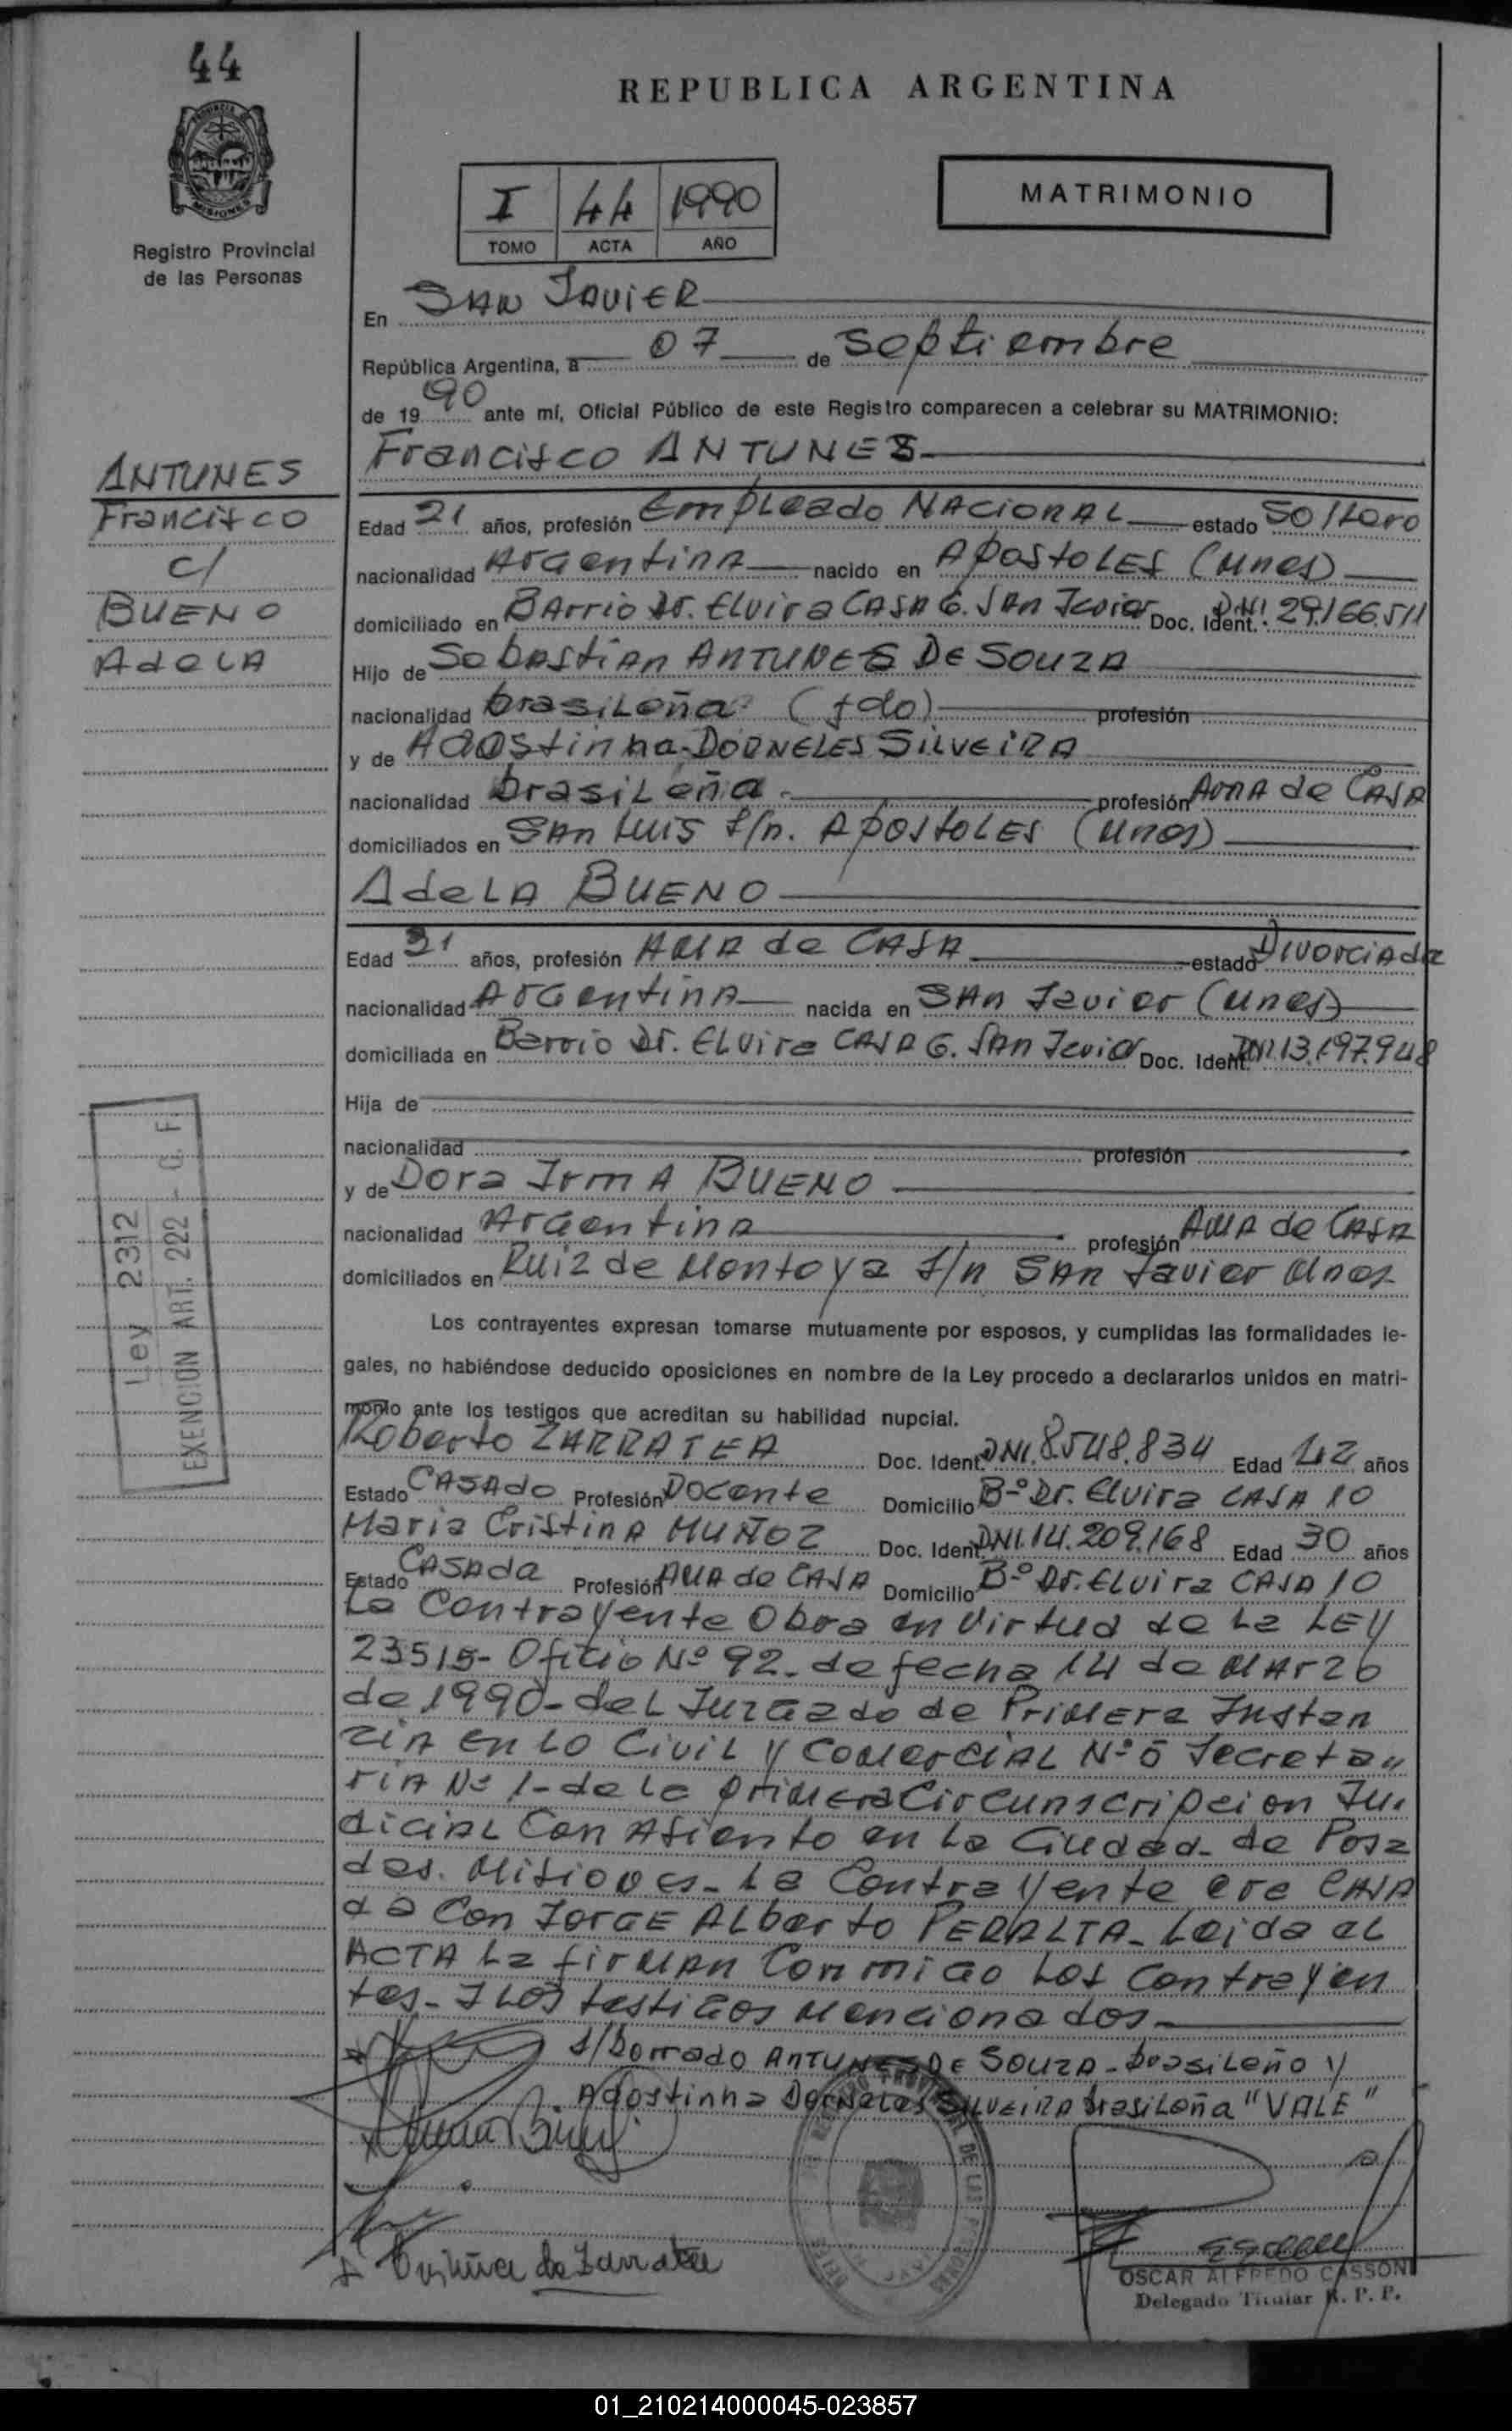 44
REPUBLICA ARGENTINA
PROVINCIA DE MISIONES
Registro Provincial
de las Personas
I 44 1990
TOMO ACTA AÑO
MATRIMONIO
En SAN JAVIER
República Argentina, a 07 de septiembre
de 1990 ante mí, Oficial Público de este Registro comparecen a celebrar su MATRIMONIO:
Francisco ANTUNES
ANTUNES
Francisco
c/
BUENO
AdeLA
Edad 21 años, profesión EmpLeado NACionAL estado SoLtero
nacionalidad ArGentinA nacido en ApostoLES (Mnes)
domiciliado en BArrio Dr. ELvira CASA 6. SAn Javier Doc. Ident.: DNI 29.166.511
Hijo de SebAstiAn ANTUNES DE SOUZA
nacionalidad brasiLeña (fdo) profesión
y de AGostinha DORNELES SILVEIRA
nacionalidad brasiLeña profesión AmA de CASA
domiciliados en SAn Luis s/n. ApostoLES (Mnes)
AdeLA BUENO
Edad 31 años, profesión AMA de CASA estado DivorciAda
nacionalidad ArGentinA nacida en SAn Javier (Mnes)
domiciliada en Barrio Dr. ELvira CASA 6. SAn Javier Doc. Ident. DNI.13.197.948
Hija de
nacionalidad profesión
y de Dora IrmA BUENO
nacionalidad ArGentinA profesión AMA de CASA
domiciliados en Ruiz de Montoya s/n SAn Javier Mnes
Ley 2312
EXENCION ART. 222 - C. F.
Los contrayentes expresan tomarse mutuamente por esposos, y cumplidas las formalidades le-
gales, no habiéndose deducido oposiciones en nombre de la Ley procedo a declararlos unidos en matri-
monio ante los testigos que acreditan su habilidad nupcial.
Roberto ZARRATEA Doc. Ident. DNI.8.548.834 Edad 42 años
Estado CASAdo Profesión Docente Domicilio Bº Dr. ELvira CASA 10
Maria CristinA MUÑOZ Doc. Ident. DNI.14.209.168 Edad 30 años
Estado CASAda Profesión AMA de CASA Domicilio Bº Dr. ELvira CASA 10
La Contrayente Obra en Virtud de La LEY
23515- Oficio Nº 92. de fecha 14 de MArzo
de 1990- deL JuzGado de PriMera Instan
ciA en Lo CiviL y ComerciAL Nº 5 Secreta,,
riA Nº 1- de La primera Circunscripcion Ju,
diciAL Con ASiento en La Ciudad de Posa
das. Misiones- La Contrayente era CASA
da Con JorGE ALberto PERALTA- Leida eL
ACTA La firMAn ConmiGo Los Contrayen
tes- I Los testiGos Mencionados
s/borrado ANTUNES DE SOUZA- brasiLeño y
AGostinha DorneLes SILVEIRA brasiLeña "VALE"
OSCAR ALFREDO CASSONI
Delegado Titular R. P. P.
01_210214000045-023857